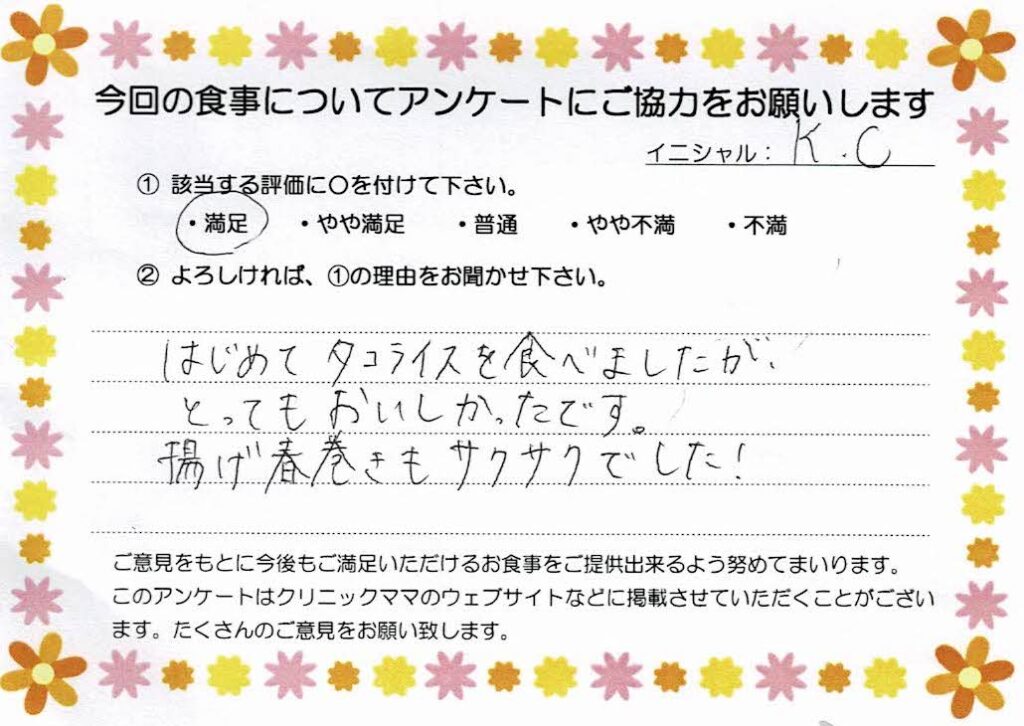 今回の食事についてアンケートにご協力をお願いします
イニシャル： K.C
① 該当する評価に〇を付けて下さい。
・満足 ・やや満足 ・普通 ・やや不満 ・不満
② よろしければ、①の理由をお聞かせ下さい。
はじめて タコライスを食べましたが、
とっても おいしかったです。
揚げ春巻きもサクサクでした！
ご意見をもとに今後もご満足いただけるお食事をご提供出来るよう努めてまいります。
このアンケートはクリニックママのウェブサイトなどに掲載させていただくことがござい
ます。たくさんのご意見をお願い致します。